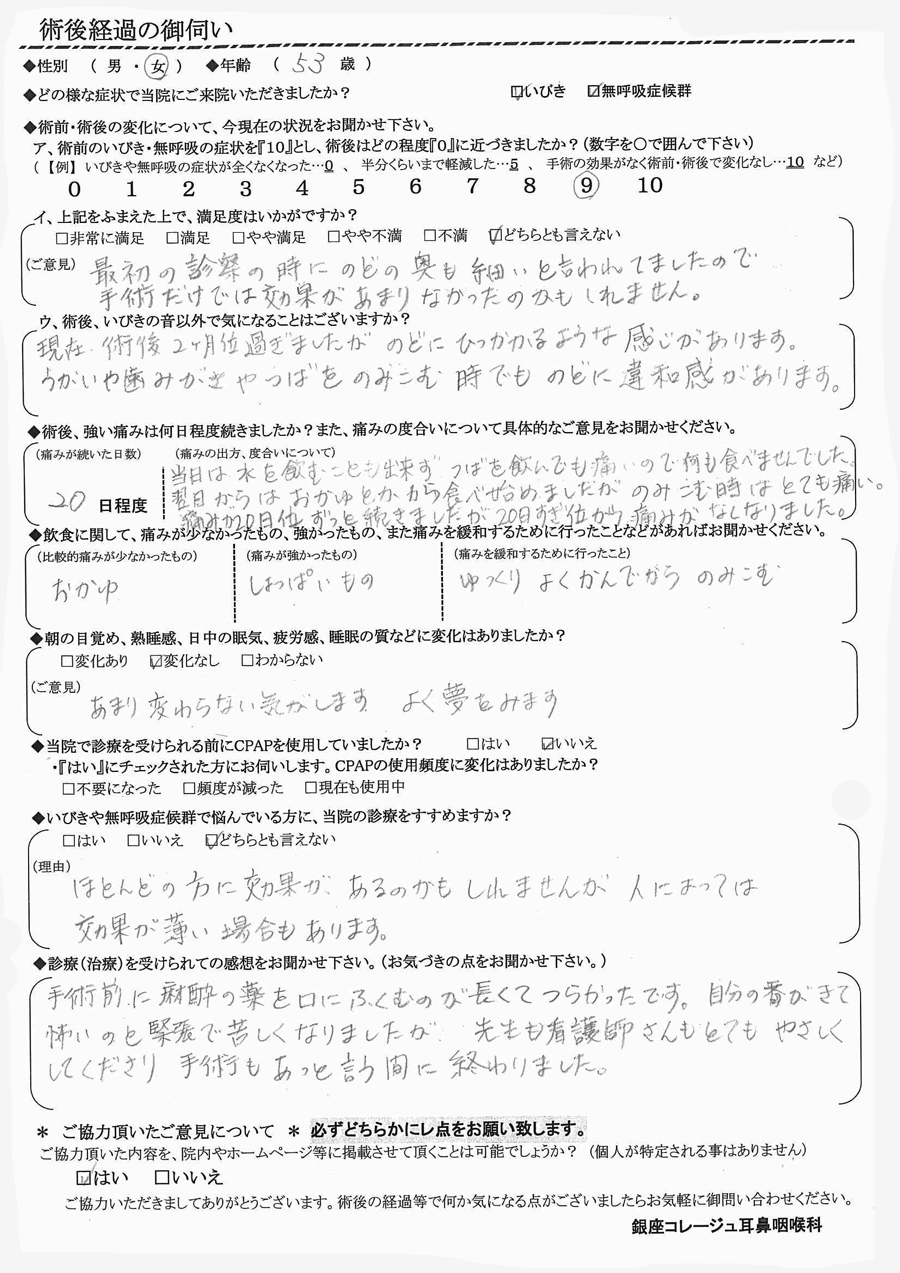 術後経過の御伺い
◆性別 ( 男 ・ 女 ) ◆年齢 ( 53 歳 )
◆どの様な症状で当院にご来院いただきましたか? ☑いびき ☑無呼吸症候群
◆術前・術後の変化について、今現在の状況をお聞かせ下さい。
ア、術前のいびき・無呼吸の症状を『10』とし、術後はどの程度『0』に近づきましたか?(数字を○で囲んで下さい)
(【例】いびきや無呼吸の症状が全くなくなった…0 、 半分くらいまで軽減した…5 、 手術の効果がなく術前・術後で変化なし…10 など)
0 1 2 3 4 5 6 7 8 9 10
イ、上記をふまえた上で、満足度はいかがですか?
□非常に満足 □満足 □やや満足 □やや不満 □不満 ☑どちらとも言えない
(ご意見) 最初の診察の時にのどの奥も細いと言われてましたので
手術だけでは効果があまりなかったのかもしれません。
ウ、術後、いびきの音以外で気になることはございますか?
現在、術後2ヶ月位過ぎましたが のどにひっかかるような感じがあります。
うがいや歯みがきやつばをのみこむ時でものどに違和感があります。
◆術後、強い痛みは何日程度続きましたか?また、痛みの度合いについて具体的なご意見をお聞かせください。
(痛みが続いた日数) (痛みの出方、度合いについて)
当日は水を飲むことも出来ず つばを飲んでも痛いので何も食べませんでした。
翌日からはおかゆとかから食べ始めましたが のみこむ時はとても痛い。
20 日程度 痛みが20日位ずっと続きましたが20日すぎ位から痛みがなくなりました。
◆飲食に関して、痛みが少なかったもの、強かったもの、また痛みを緩和するために行ったことなどがあればお聞かせください。
(比較的痛みが少なかったもの) (痛みが強かったもの) (痛みを緩和するために行ったこと)
おかゆ しょっぱいもの ゆっくり よくかんでから のみこむ
◆朝の目覚め、熟睡感、日中の眠気、疲労感、睡眠の質などに変化はありましたか?
□変化あり ☑変化なし □わからない
(ご意見)
あまり変わらない気がします よく夢をみます
◆当院で診療を受けられる前にCPAPを使用していましたか? □はい ☑いいえ
・『はい』にチェックされた方にお伺いします。CPAPの使用頻度に変化はありましたか?
□不要になった □頻度が減った □現在も使用中
◆いびきや無呼吸症候群で悩んでいる方に、当院の診療をすすめますか?
□はい □いいえ ☑どちらとも言えない
(理由)
ほとんどの方に効果が、あるのかもしれませんが 人によっては
効果が薄い場合もあります。
◆診療(治療)を受けられての感想をお聞かせ下さい。(お気づきの点をお聞かせ下さい。)
手術前に麻酔の薬を口にふくむのが長くてつらかったです。自分の番がきて
怖いのと緊張で苦しくなりましたが、先生も看護師さんもとてもやさしく
してくださり 手術もあっと言う間に終わりました。
* ご協力頂いたご意見について * 必ずどちらかにレ点をお願い致します。
ご協力頂いた内容を、院内やホームページ等に掲載させて頂くことは可能でしょうか? (個人が特定される事はありません)
☑はい □いいえ
ご協力いただきましてありがとうございます。術後の経過等で何か気になる点がございましたらお気軽に御問い合わせください。
銀座コレージュ耳鼻咽喉科